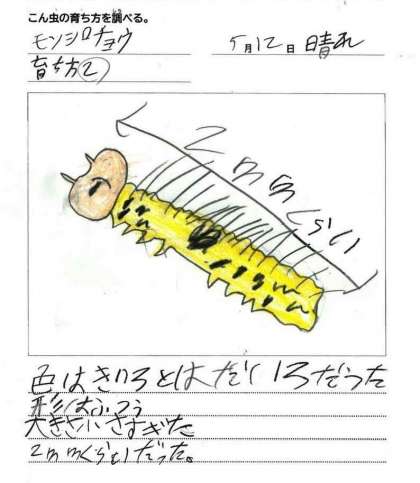 こん虫の育ち方を調べる。
モンシロチョウ
5月12日 晴れ
育ち方②
2mmくらい
色はきいろとはだいろだった
形はふつう
大きさ小さすぎた
2mmくらいだった。